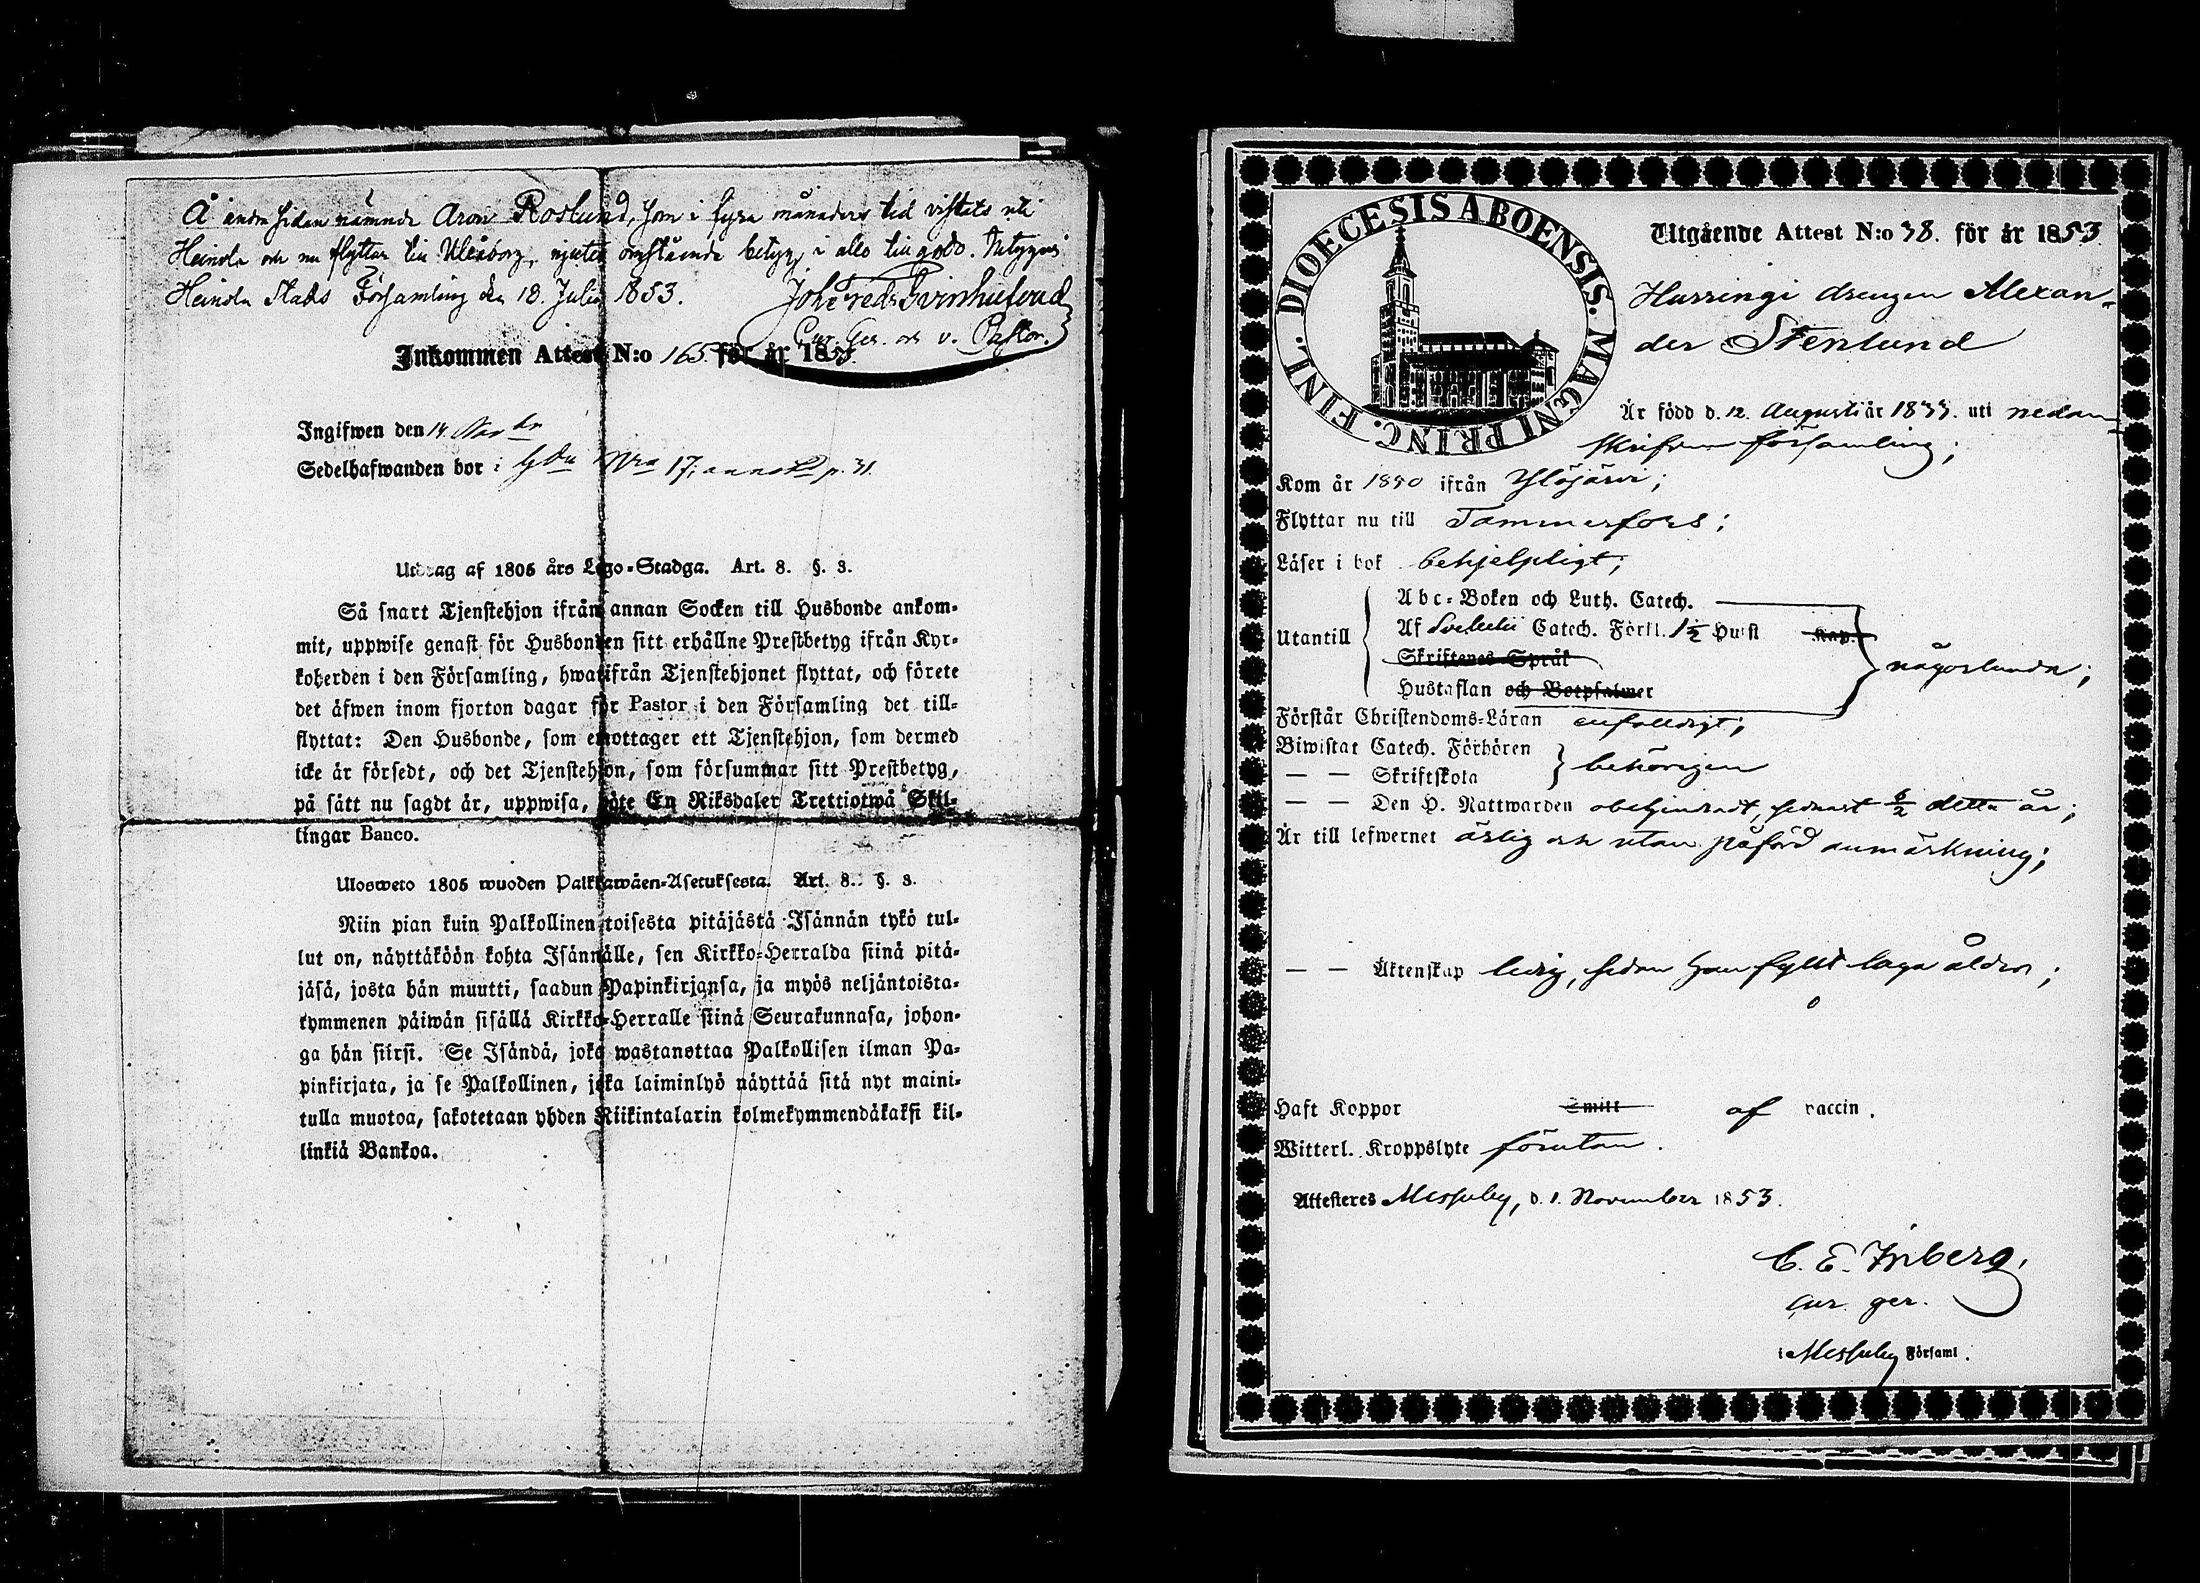 Å andra sidan nämnde Aron Roslund, som i fyra månaders tid vistats uti
Heinola och nu flyttar till Uleåborg, njuter omstående betyg i allo till godo. Betygas
Heinola Stads Församling den 18. Julii 1853.
Cur. Ger. och v. Pastor.
Inkommen Attest N:o 165. för år 185
Ingifwen den 14
Sedelhafwanden bor i 17 p. 31.
Utdrag af 1805 års Lego-Stadga. Art. 8. §. 3.
Så snart Tjenstehjon ifrån annan Socken till Husbonde ankom-
mit, uppwise genast för Husbonden sitt erhållne Prestbetyg ifrån Kyr-
koherden i den Församling, hwarifrån Tjenstehjonet flyttat, och förete
det äfwen inom fjorton dagar för Pastor i den Församling det till-
flyttat: Den Husbonde, som emottager ett Tjenstehjon, som dermed
icke är försedt, och det Tjenstehjon, som försummar sitt Prestbetyg,
på sätt nu sagdt är, uppwisa, böte En Riksdaler Trettiotwå Skil-
lingar Banco.
Ulosweto 1805 wuoden Palkkawäen-Asetuksesta. Art. 8. §. 3.
Niin pian kuin Palkollinen toisesta pitäjästä Isännän tykö tul-
lut on, näyttäköön kohta Isännälle, sen Kirkko-Herralda siinä pitä-
jäsä, josta hän muutti, saadun Papinkirjansa, ja myös neljäntoista-
kymmenen päiwän sisällä Kirkko-Herralle siinä Seurakunnasa, johon-
ga hän siirsi. Se Isändä, joka wastanottaa Palkollisen ilman Pa-
pinkirjata, ja se Palkollinen, joka laiminlyö näyttää sitä nyt maini-
tulla muotoa, sakotetaan yhden Riikintalarin kolmekymmendäkaksi kil-
linkiä Bankoa.
DIOECESIS ABOENSIS. MAGNI PRINC. FINL.
Utgående Attest N:o 38. för år 1853.
Hussingi drengen Alexan-
der Stenlund
Är född d. 12. Augusti år 1833. uti nedan-
skrifven församling;
Kom år 1850 ifrån Ylöjärvi;
Flyttar nu till Tammerfors;
Läser i bok behjelpligt;
Utantill
Abc-Boken och Luth. Catech.
Af Svebelii Catech. Förkl. 1½ Huf.st Kap.
Skriftenes Språk
Hustaflan och Botpsalmer
någorlunda;
Förstår Christendoms-Läran enfalldigt;
Biwistat Catech. Förhören
— — Skriftskola
behörigen
— — Den H. Nattwarden obehindradt, sednast 6/2 detta år;
Är till lefwernet ärlig och utan påförd anmärkning;
— — Äktenskap ledig, sedan han fyllt laga ålder;
Haft Koppor Smitt af vaccin.
Witterl. Kroppslyte förutan.
Attesteres Messuby, d. 1. November 1853.
C. E. Inberg,
cur. ger.
i Messuby Församl.